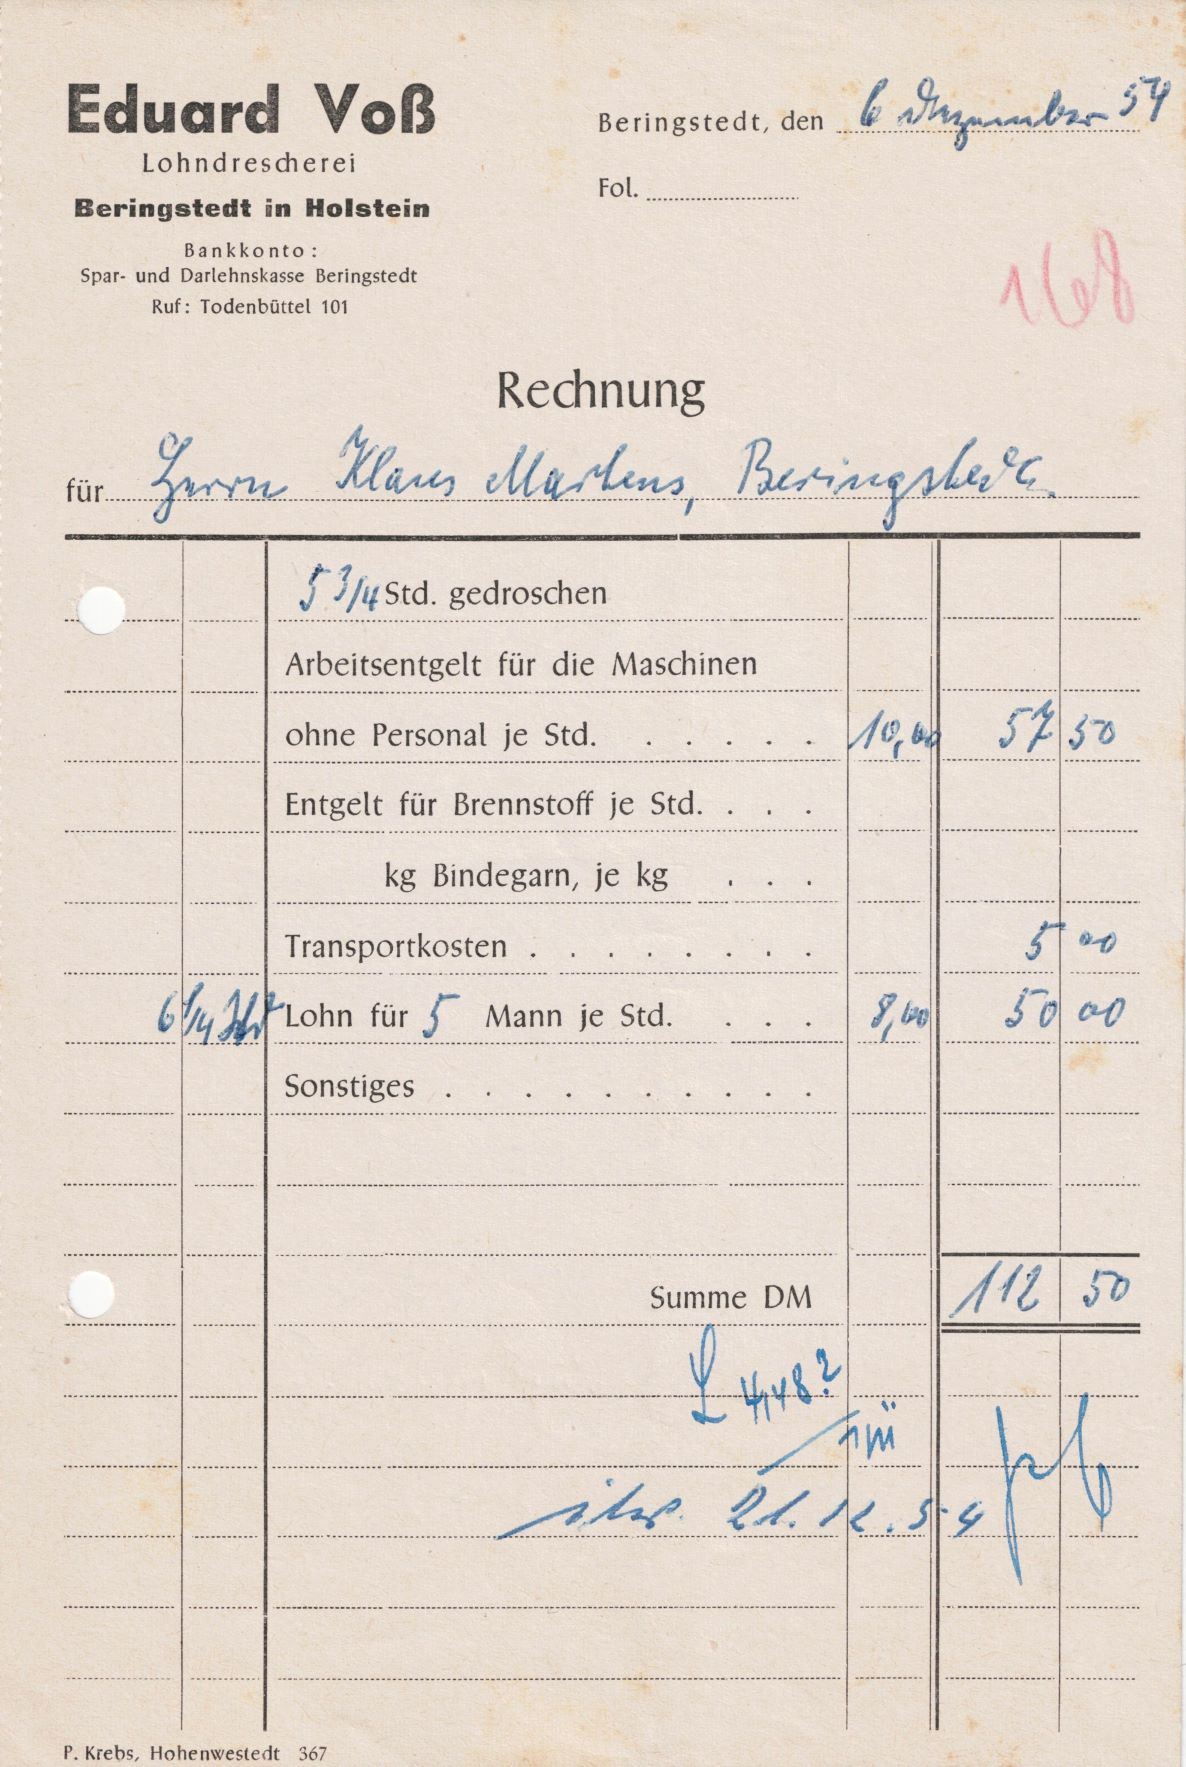 Eduard Voß
Lohndrescherei
Beringstedt in Holstein
Bankkonto:
Spar- und Darlehnskasse Beringstedt
Ruf: Todenbüttel 101
Beringstedt, den 6 Dezember 54
Fol.
168
Rechnung
für Herrn Klaus Martens, Beringstedt.
5 3/4 Std. gedroschen
Arbeitsentgelt für die Maschinen
ohne Personal je Std. . . . . . 10,00 57 50
Entgelt für Brennstoff je Std. . . .
kg Bindegarn, je kg . . .
Transportkosten . . . . . . . . 5 00
6 1/4 Std Lohn für 5 Mann je Std. . . . 8,00 50 00
Sonstiges . . . . . . . . . .
Summe DM 112 50
L 4,48?
21.12.54
P. Krebs, Hohenwestedt 367